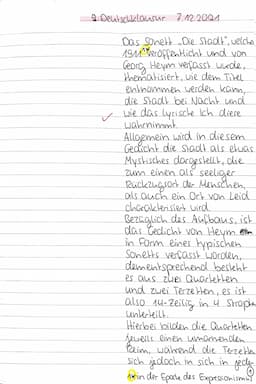 2. Deutschklausur 7.12.2021
Das Sonett „Die Stadt", welche
1911 veröffentlicht und von
Georg Heym verfasst wurde,
thematisiert, wie dem Titel
entnommen werden kann,
die Stadt bei Nacht und
wie das lyrische Ich diese
wahrnimmt.
Allgemein wird in diesem
Gedicht die Stadt als etwas
Mystisches dargestellt, die
zum einen als seeliger
Rückzugsort der Menschen,
als auch ein Ort von Leid
charakterisiert wird.
Bezüglich des Aufbaus, ist
das Gedicht von Heym
in Form eines typischen
Sonetts verfasst worden,
dementsprechend besteht
es aus zwei Quartetten
und zwei Terzetten, es ist
also 14-zeilig in 4 Strophe
unterteilt.
Hierbei bilden die Quartetten
jeweils einen umarmenden
Reim, während die Terzette
sich jedoch in sich in
in der Epoche des Expressionismus
1